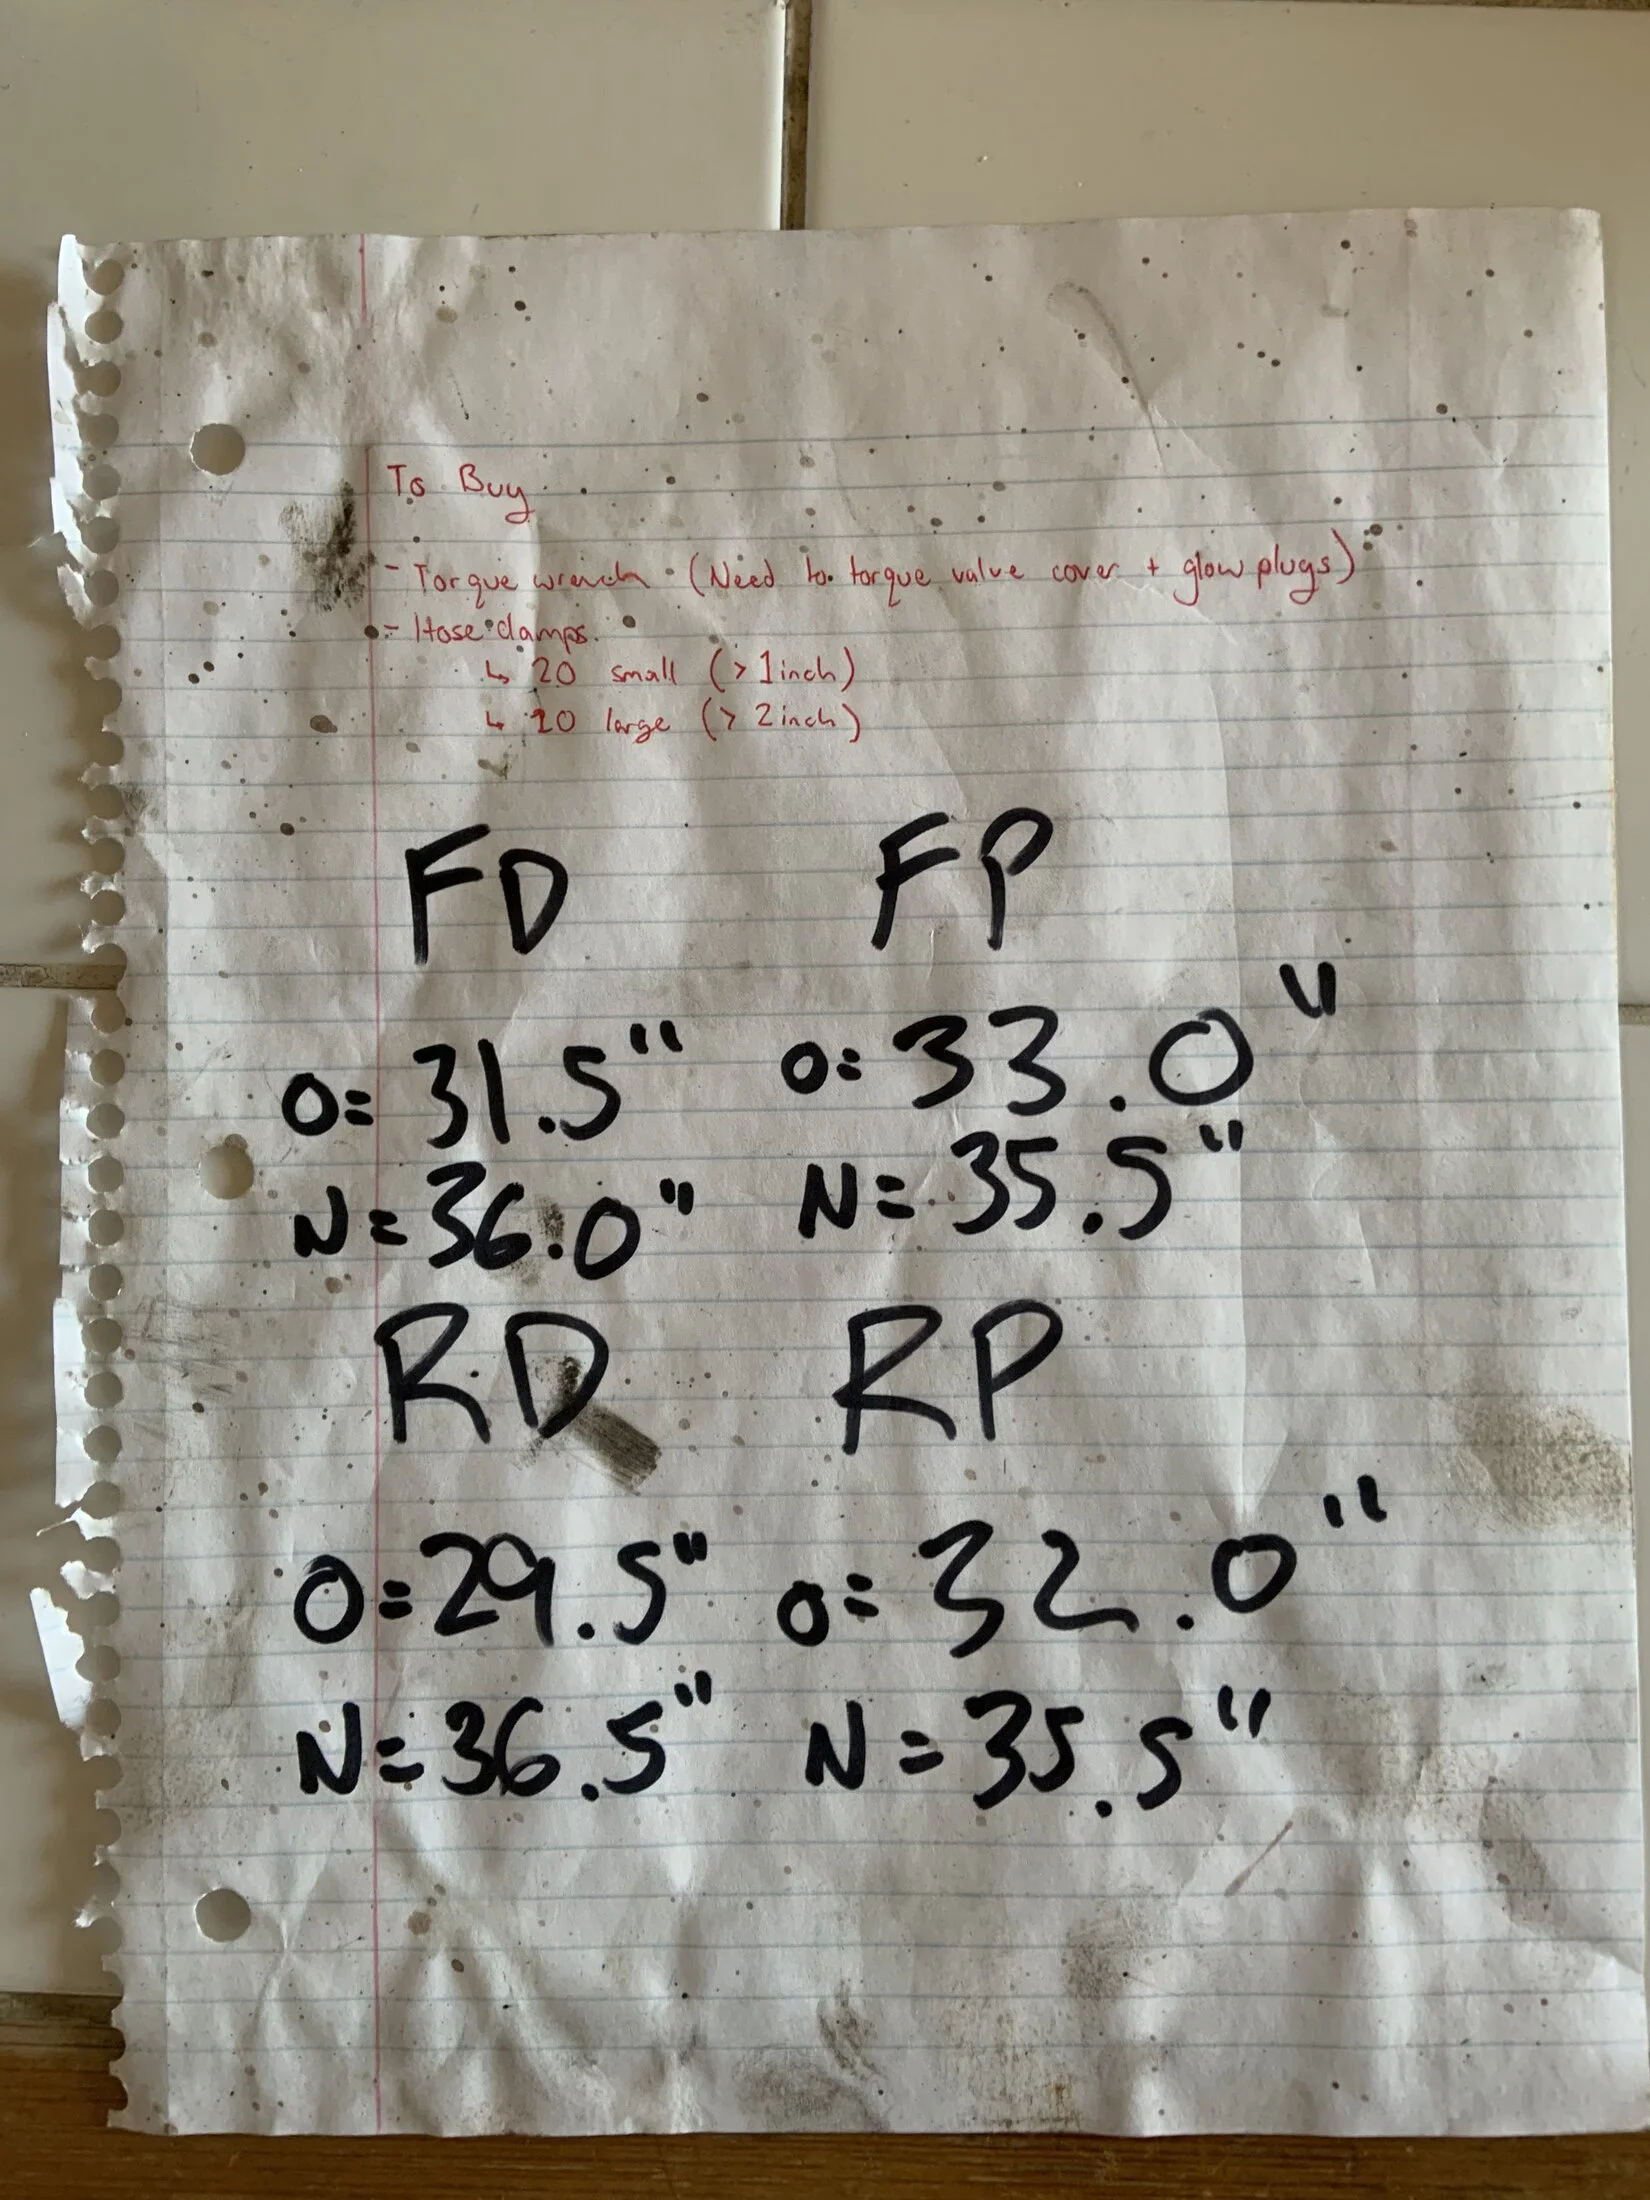 To Buy
- Torque wrench (Need to torque valve cover + glow plugs)
- Hose clamps
↳ 20 small (> 1 inch)
↳ 10 large (> 2 inch)
FD FP
O= 31.5" O= 33.0"
N= 36.0" N= 35.5"
RD RP
O= 29.5" O= 32.0"
N= 36.5" N= 35.5"